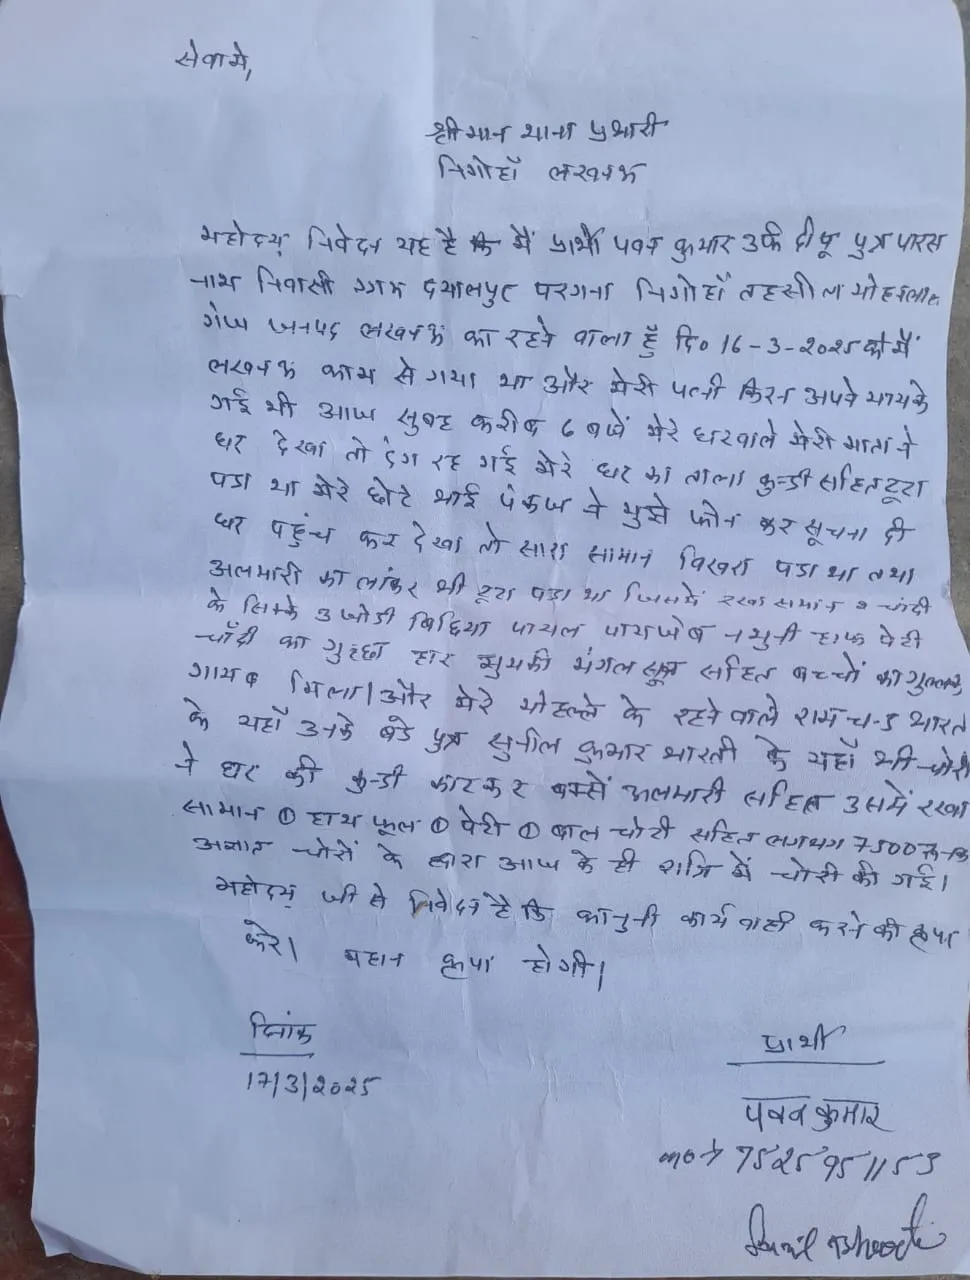 सेवामे,
श्रीमान थाना प्रभारी
निगोहाँ लखनऊ
महोदय् निवेदन यह है कि मैं प्रार्थी पवन कुमार उर्फ दीपू पुत्र पारस
नाथ निवासी ग्राम दयालपुर परगना निगोहाँ तहसील मोहनलाल
गंज जनपद लखनऊ का रहने वाला हूँ दि० 16-3-2025 को मैं
लखनऊ काम से गया था और मेरी पत्नी किरन अपने मायके
गई थी आज सुबह करीब 6 बजे मेरे घरवाले मेरी माता ने
घर देखा तो दंग रह गई मेरे घर का ताला कुन्डी सहित टूटा
पडा था मेरे छोटे भाई पंकज ने मुझे फोन कर सूचना दी
घर पहुंच कर देखा तो सारा सामान विखरा पडा था तथा
अलमारी का लांकर भी टूटा पडा था जिसमें रखा समान व चांदी
के सिक्के 3 जोडी बिछिया पायल पायजेब नथुनी हाफ पेटी
चाँदी का गुच्छा हार झुमकी मंगल सूत्र सहित बच्चों का गुल्लक
गायब मिला। और मेरे मोहल्ले के रहने वाले राम चन्द्र भारती
के यहाँ उनके बडे पुत्र सुनील कुमार भारती के यहाँ भी चोरो
ने घर की कुन्डी काटकर बक्से अलमारी सहित उसमें रखा
सामान ① हाथ फूल ① पेटी ① बाल चोटी सहित लगभग 7500 रू०
अज्ञात चोरों के द्वारा आज के ही रात्रि में चोरी की गई।
महोदय् जी से निवेदन है कि कानुनी कार्यवाही करने की कृपा
करे। महान कृपा होगी।
दिनांक
17/3/2025
प्रार्थी
पवन कुमार
mo→ 7525951153
Sunil Bharti